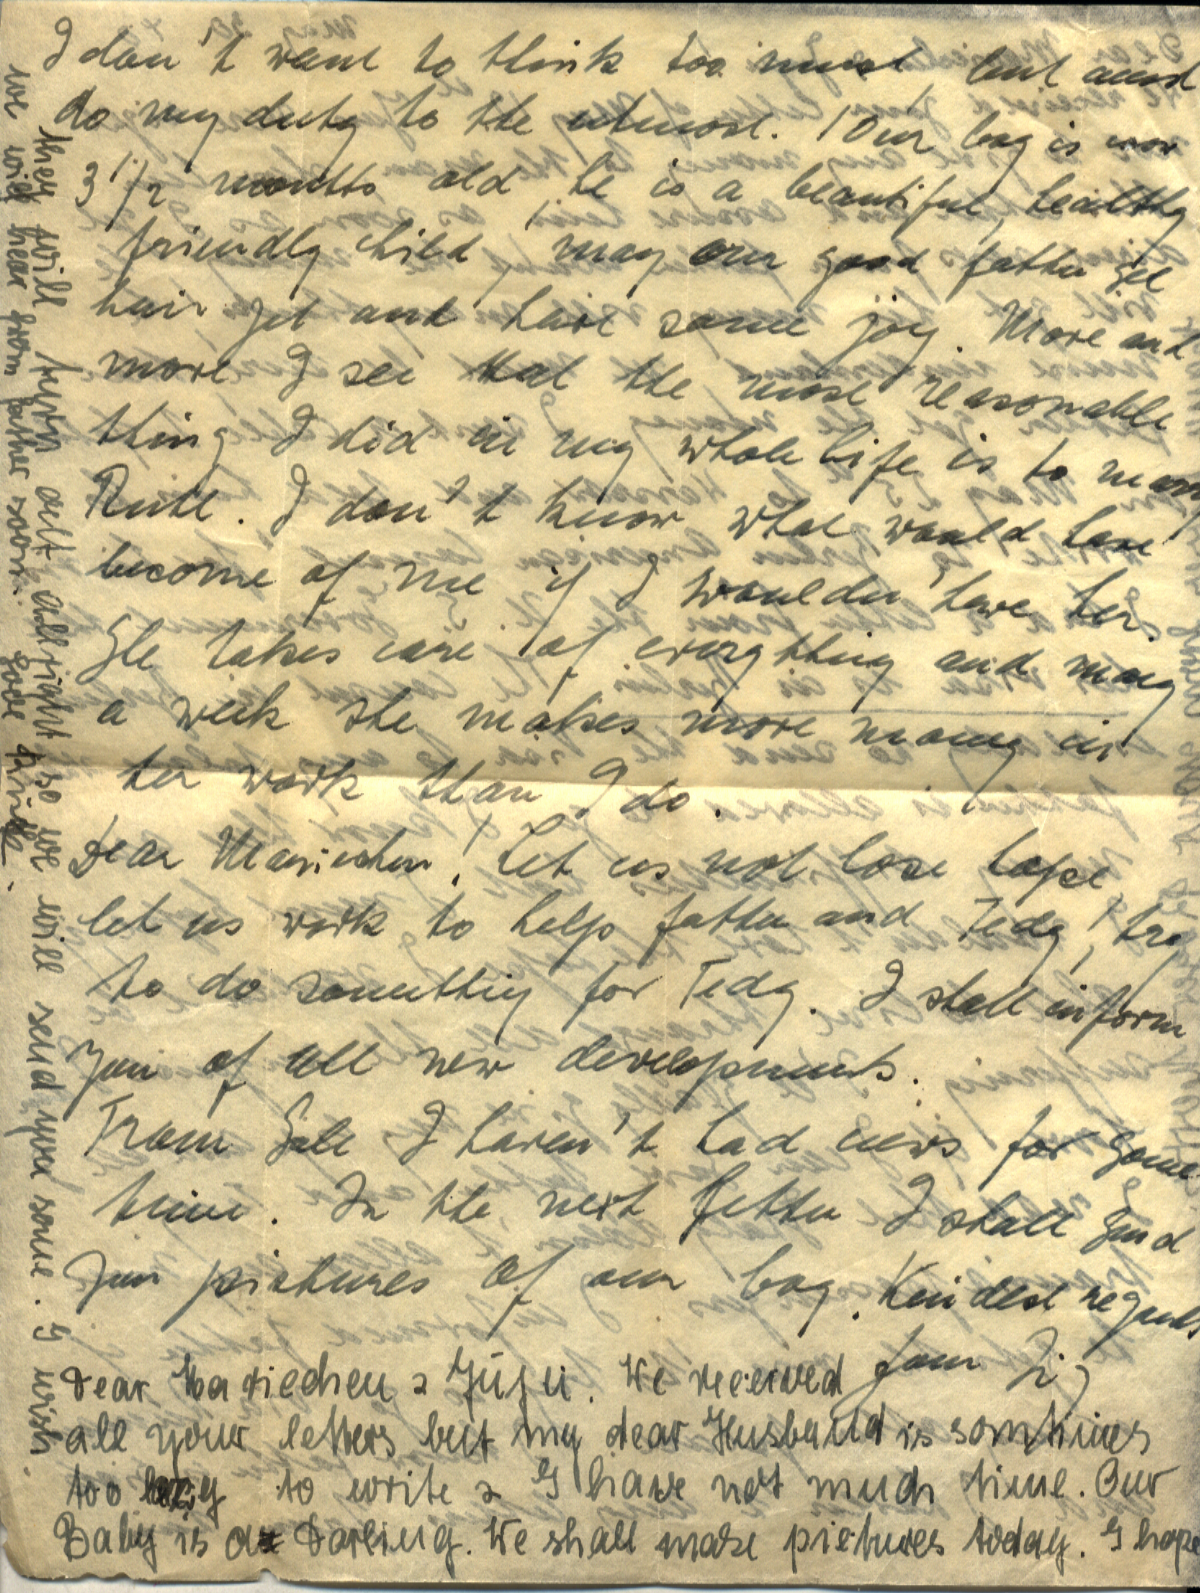 I don't want to think too much, but must
do my duty to the utmost. Our boy is now
3 1/2 months old, he is a beautiful, healthy
friendly child, may our good father see
him yet and have some joy. More and
more I see that the most reasonable
thing I did in my whole life is to marry
Ruth. I don't know what would have
become of me if I wouldn't have her.
She takes care of everything and many
a week she makes more money in
her work than I do.
Dear Mariechen! Let us not lose hope,
let us work to help father and Tedy, try
to do something for Tedy. I shall inform
you of all new developments.
From I haven't had news for some
time. In the next letter I shall send
you pictures of our boy. Kindest regards
Your
Dear Mariechen & We received
all your letters but my dear Husband is somtimes
too lazy to write & I have not much time. Our
Baby is a Darling. We shall make pictures today. I hope
they will turn out allright so we will send you some. I wish
we will hear from father soon. Love